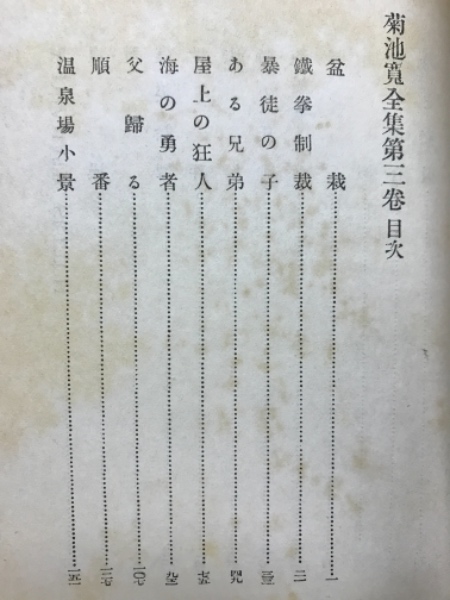 菊池寬全集第三卷 目次
盆栽 一
鐵拳制裁 二
暴徒の子 三三
ある兄弟 四九
屋上の狂人 七五
海の勇者 九一
父歸る 一〇七
順番 一二七
温泉場小景 一五一